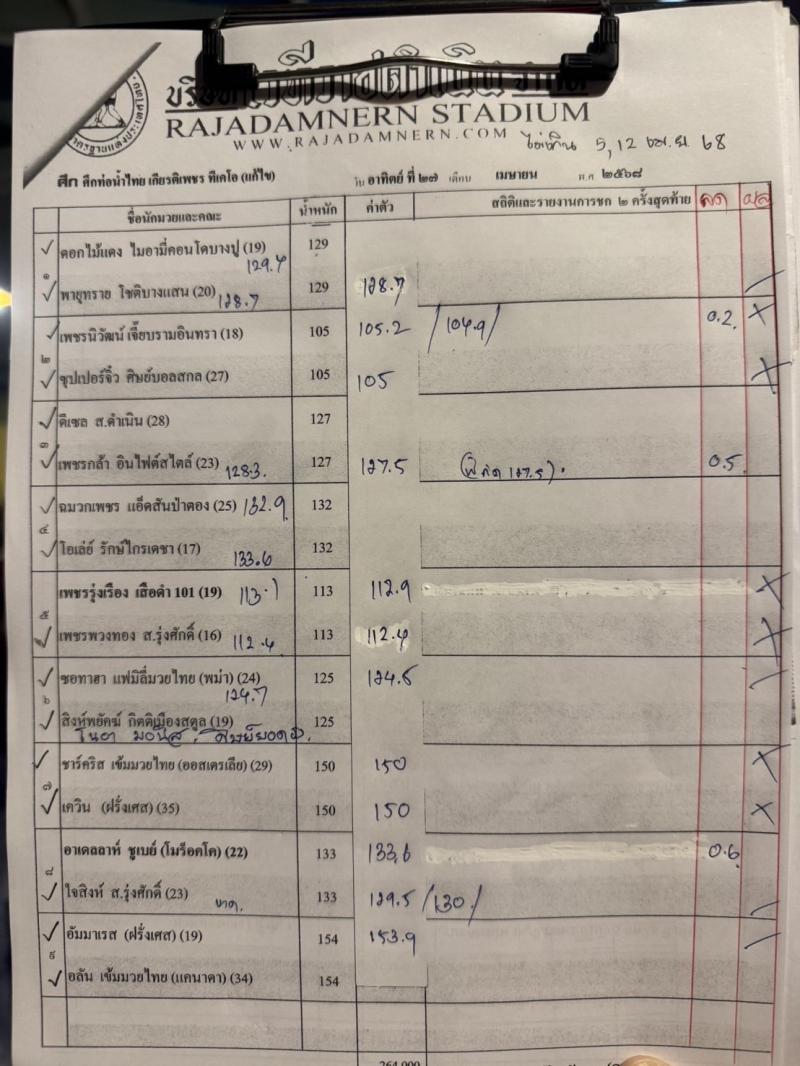 บริษัทเวทีราชดำเนิน จำกัด
RAJADAMNERN STADIUM
WWW.RAJADAMNERN.COM
5, 12 68
ศึก ศึกท่อน้ำไทย เกียรติเพชร ทีเคโอ (แก้ไข) วัน อาทิตย์ ที่ ๒๗ เดือน เมษายน พ.ศ ๒๕๖๘
ชื่อนักมวยและคณะ น้ำหนัก ค่าตัว สถิติและรายงานการชก ๒ ครั้งสุดท้าย ลด ผล
ดอกไม้แดง ไมอามี่คอนโดบางปู (19) 129
129.4
๑
พายุทราย โชติบางแสน (20) 128.7 129 128.7
เพชรนิวัฒน์ เจี๊ยบรามอินทรา (18) 105 105.2 /104.9/ 0.2
๒
ซุปเปอร์จิ๋ว ศิษย์บอลสกล (27) 105 105
ดีเซล ส.ดำเนิน (28) 127
๓
เพชรกล้า อินไฟต์สไตล์ (23) 128.3 127 127.5 (พิกัด 127.5). 0.5
ฉมวกเพชร แอ็ดสันป่าตอง (25) 132.9 132
๔
โอเล่ย์ รักษ์ไกรเดชา (17) 133.6 132
เพชรรุ่งเรือง เสือดำ 101 (19) 113.1 113 112.9
๕
เพชรพวงทอง ส.รุ่งศักดิ์ (16) 112.4 113 112.4
ซอทาฮา แฟมิลี่มวยไทย (พม่า) (24) 125 124.6
124.7
๖
สิงห์พยัคฆ์ กิตติเมืองสตูล (19) 125
ซาร์คริส เข้มมวยไทย (ออสเตรเลีย) (29) 150 150
๗
เควิน (ฝรั่งเศส) (35) 150 150
อาเดลลาห์ ซูเบย์ (โมร็อคโค) (22) 133 133.6 0.6
๘
ใจสิงห์ ส.รุ่งศักดิ์ (23) ขาด. 133 129.5 /130/
อัมมาเรส (ฝรั่งเศส) (19) 154 153.9
๙
อลัน เข้มมวยไทย (แคนาดา) (34) 154
264,000